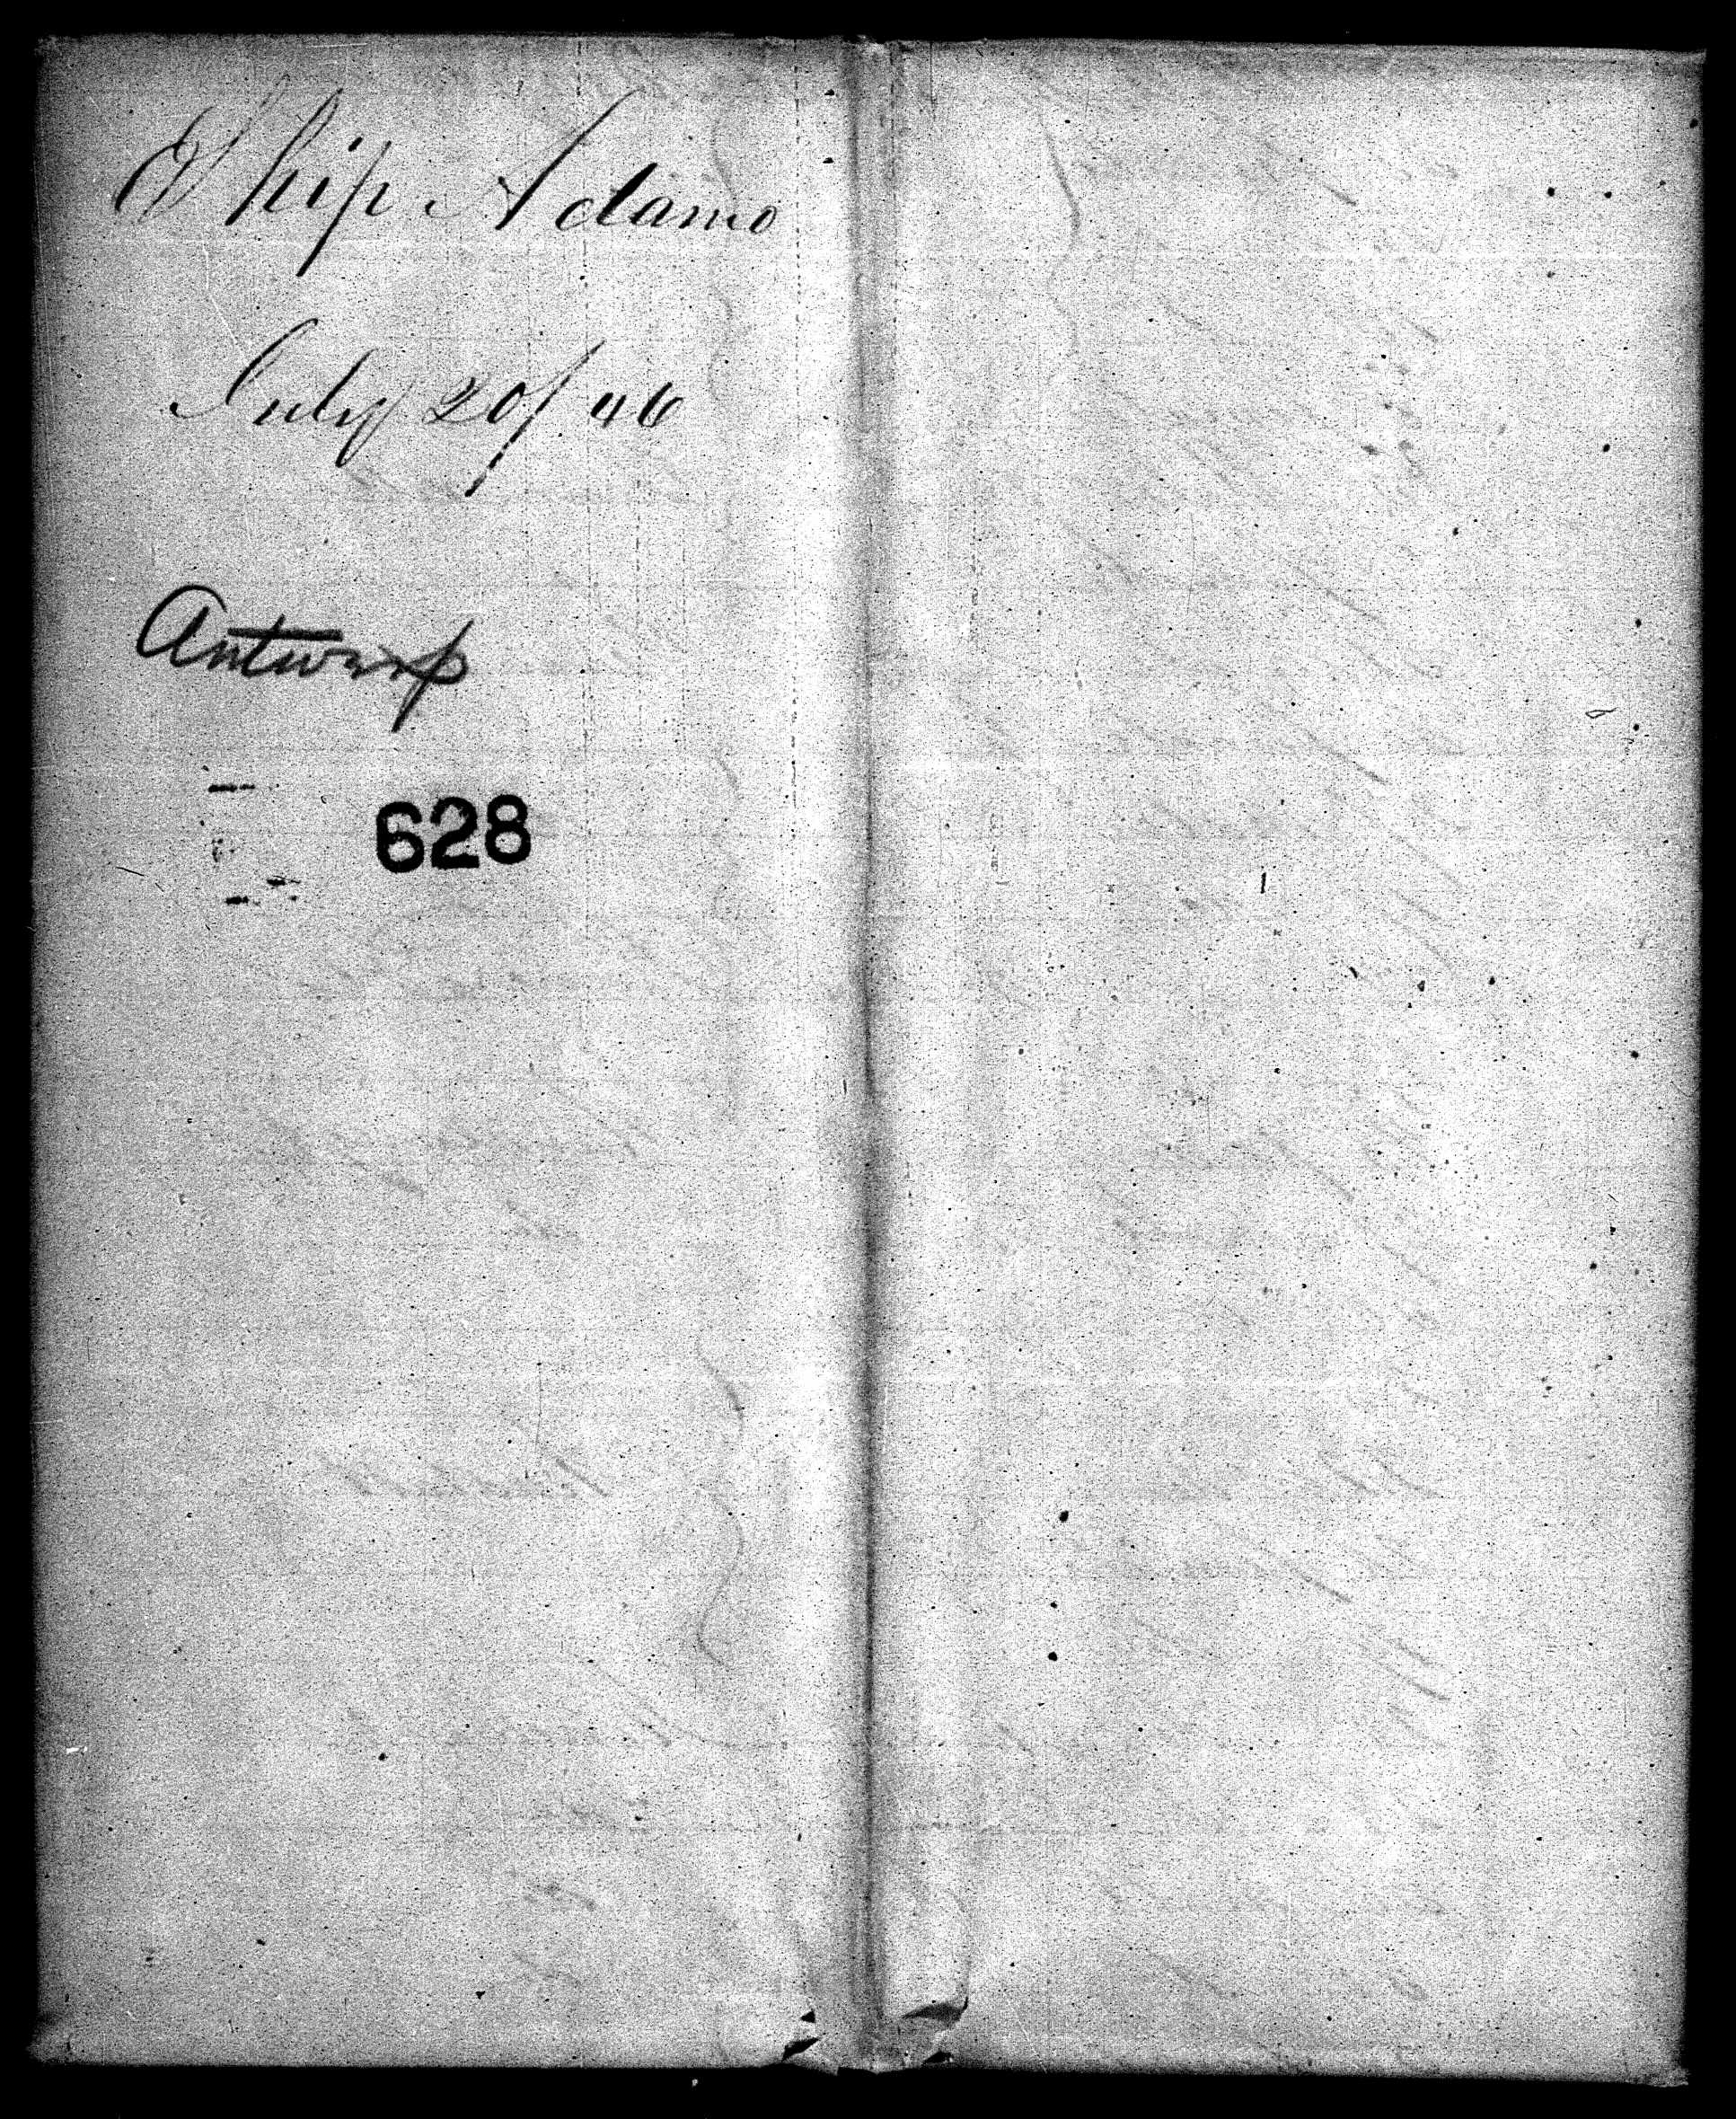 Ship Adams
July 20/46
Antwerp
628